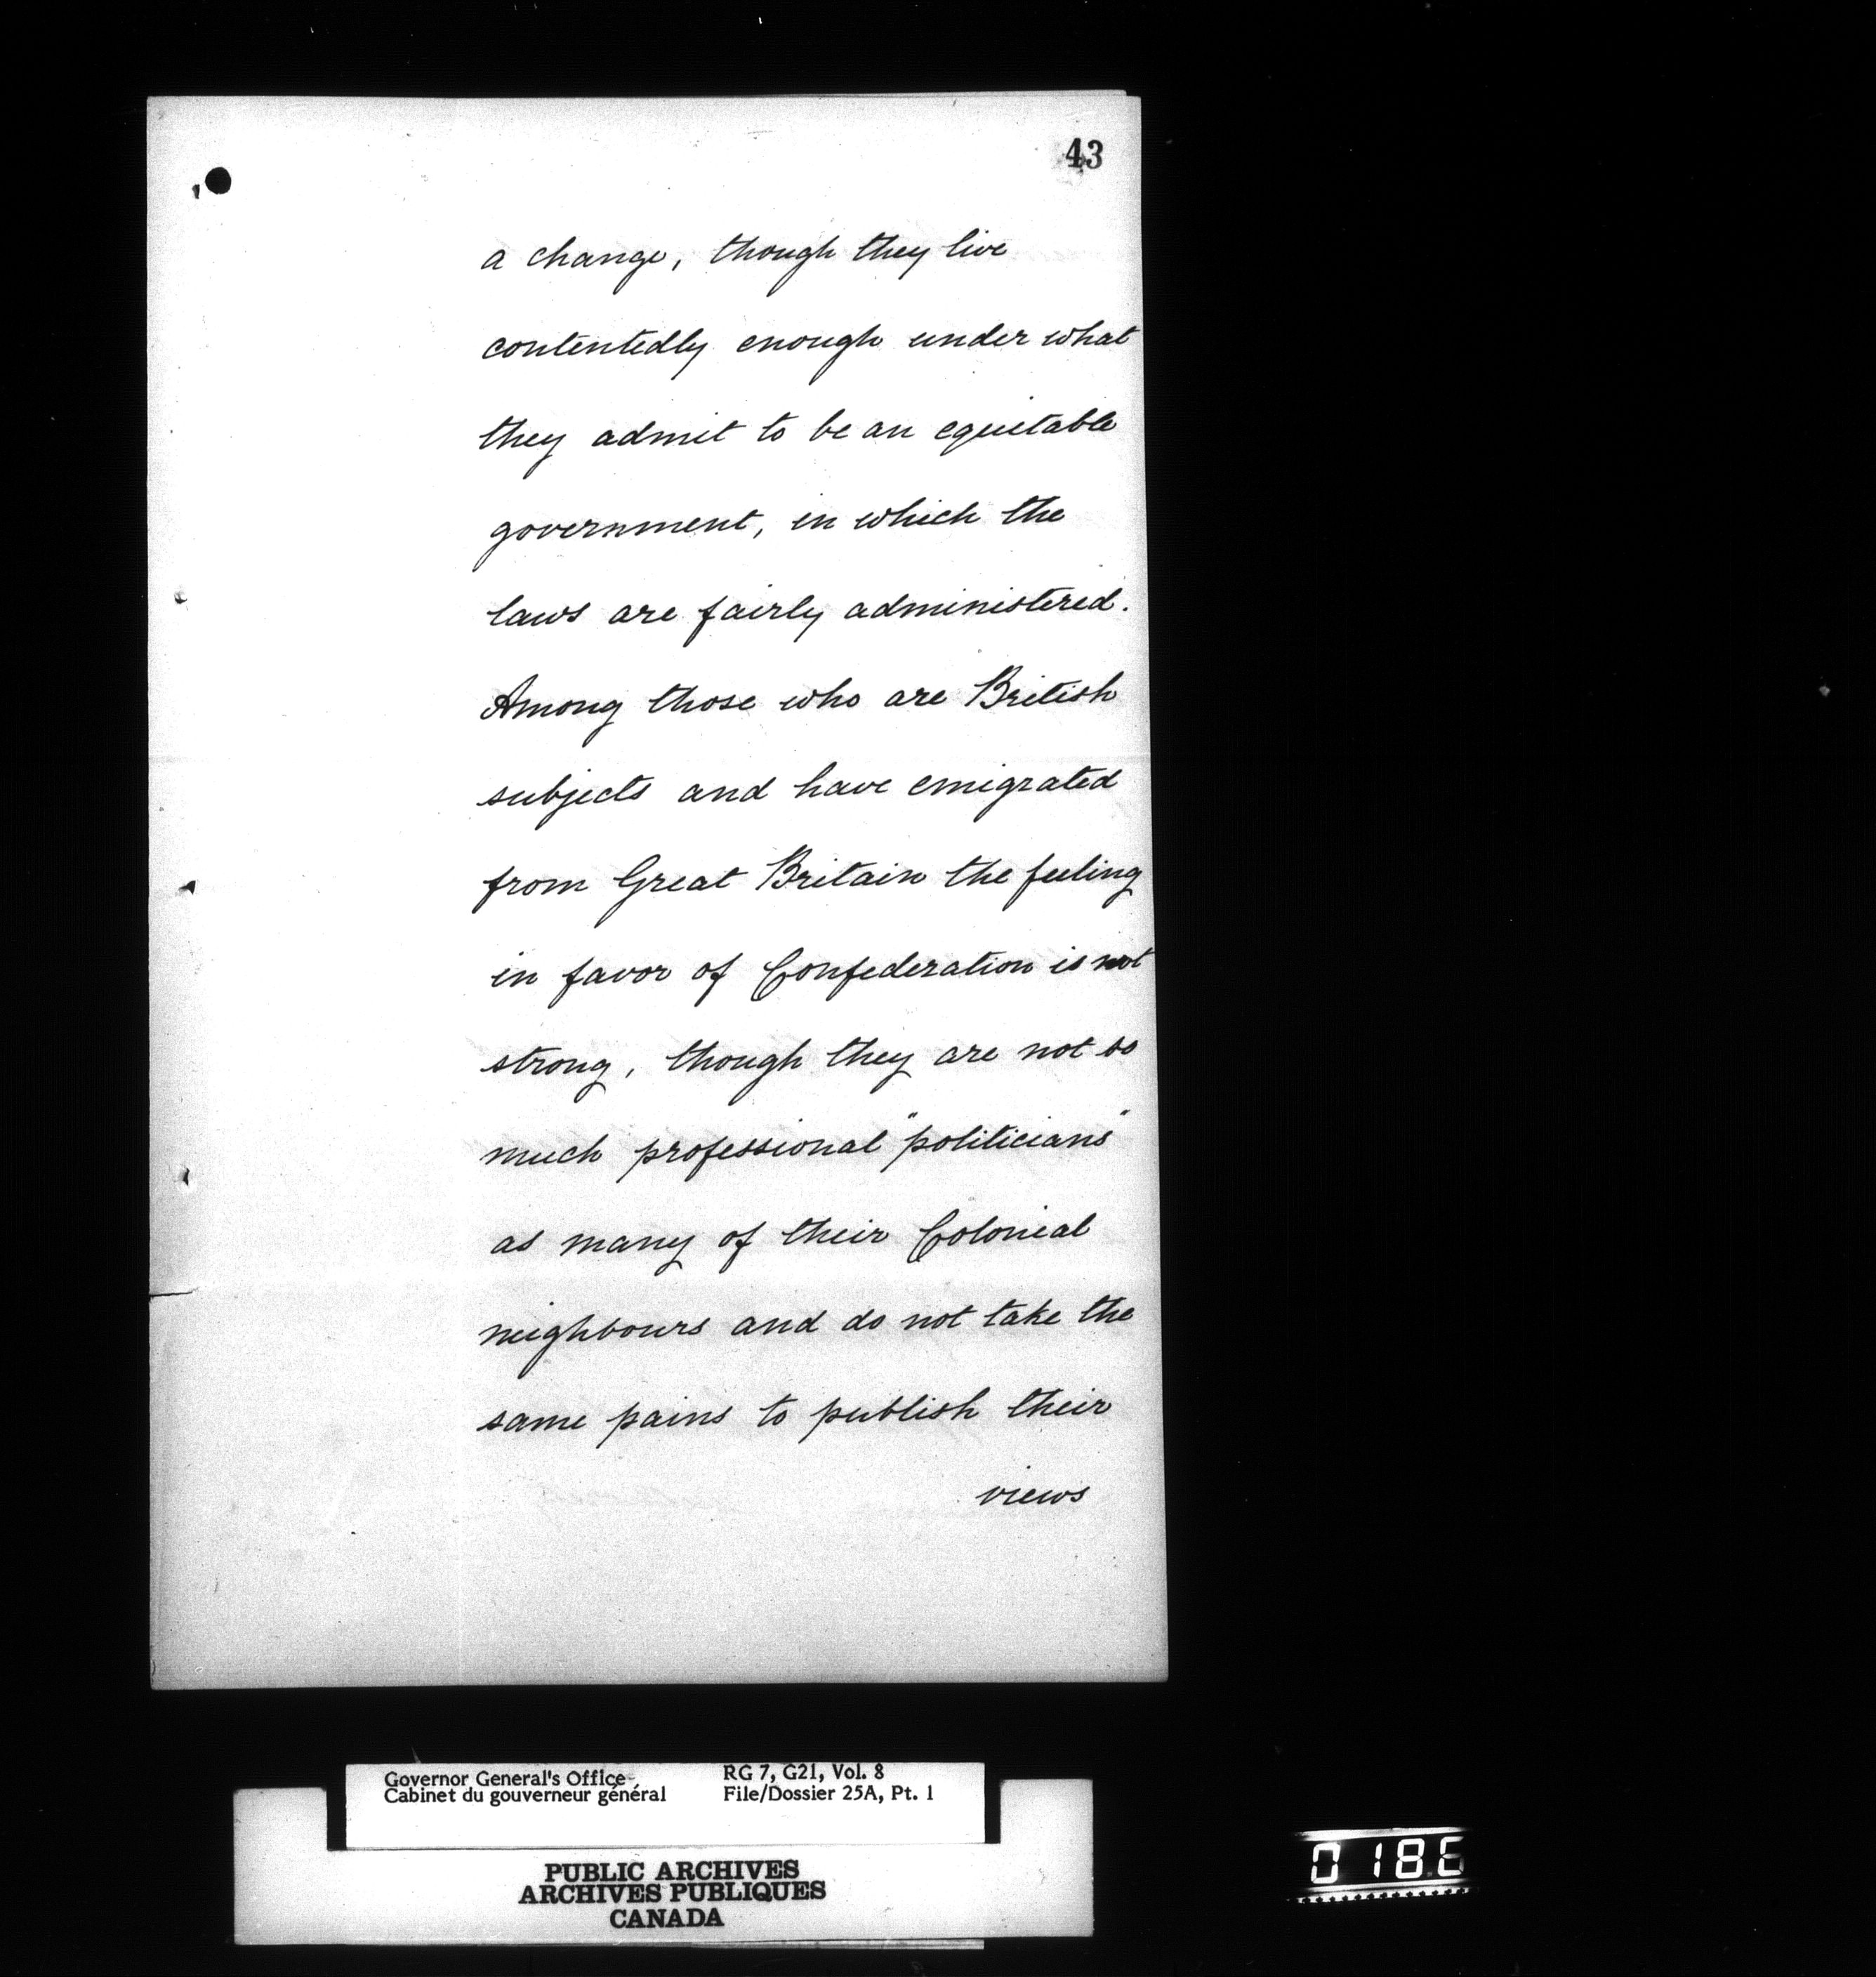 43
a change, though they live
contentedly enough under what
they admit to be an equitable
government, in which the
laws are fairly administered.
Among those who are British
subjects and have emigrated
from Great Britain the feeling
in favor of Confederation is not
strong, though they are not so
much professional "politicians"
as many of their Colonial
neighbours and do not take the
same pains to publish their
views
Governor General's Office
Cabinet du gouverneur général
RG 7, G21, Vol. 8
File/Dossier 25A, Pt. 1
PUBLIC ARCHIVES
ARCHIVES PUBLIQUES
CANADA